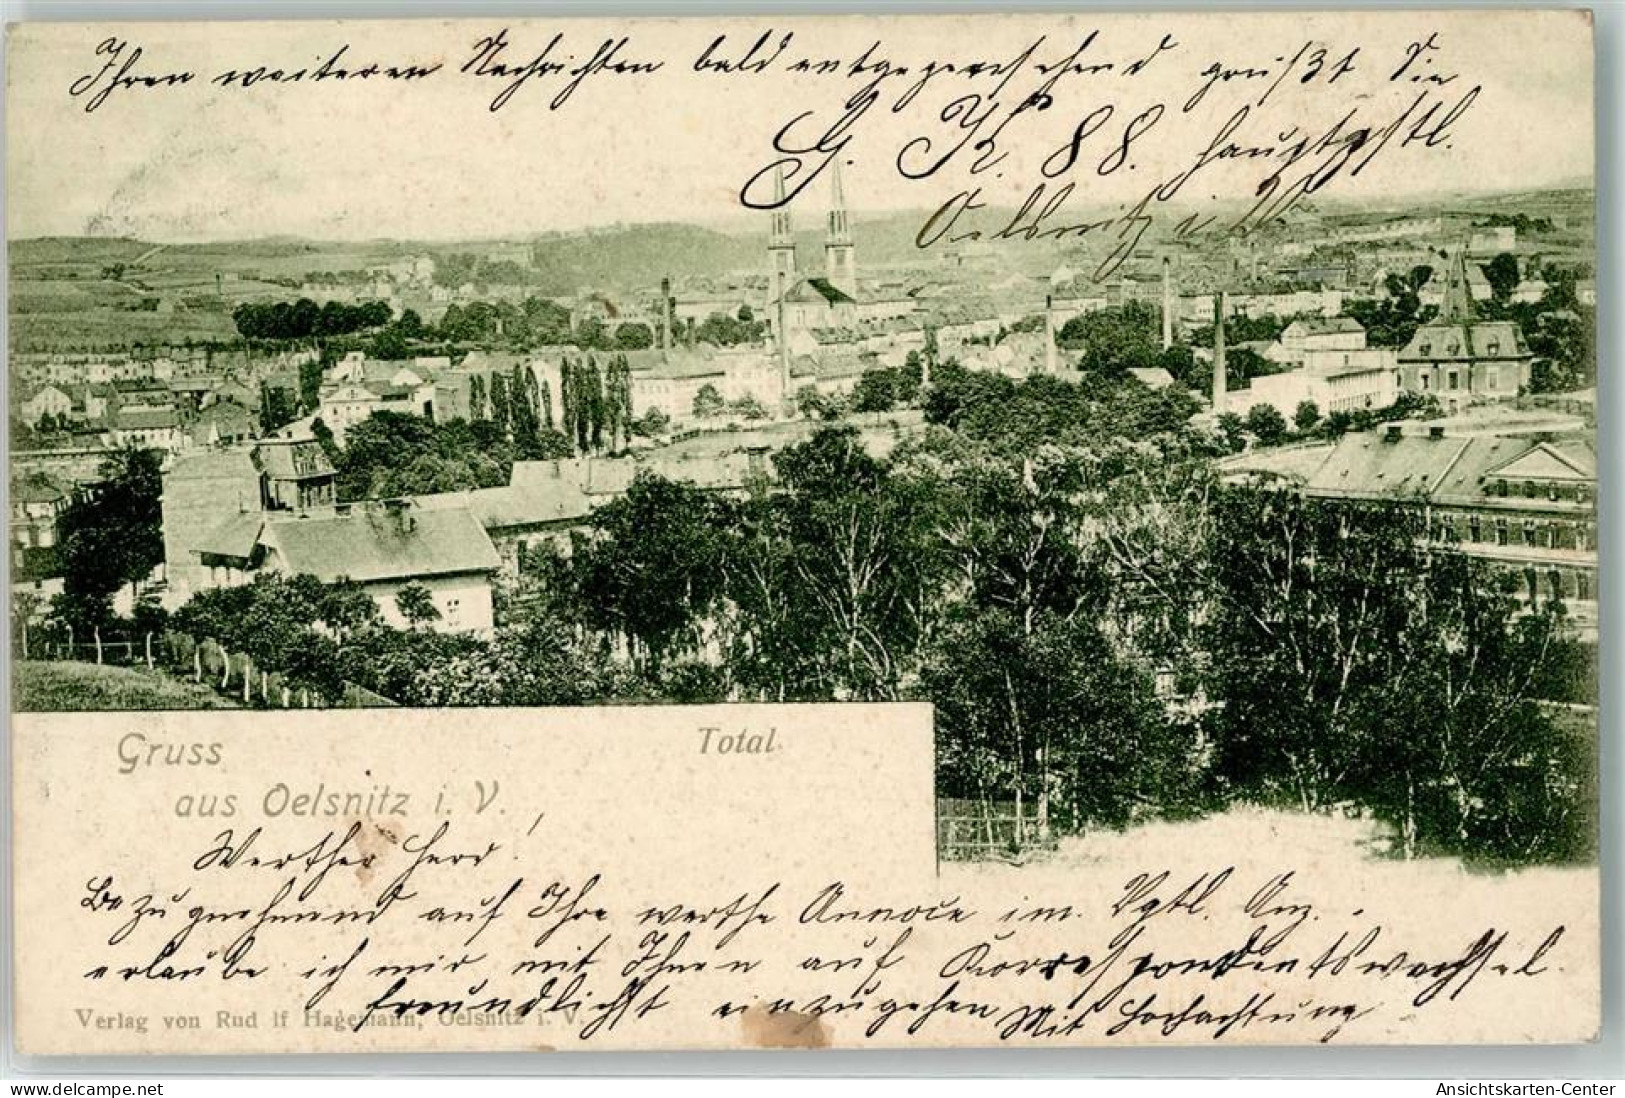 Ihren weiteren Nachrichten bald entgegensehend grüßt Sie
G. K. 88. hauptpstl.
Oelsnitz i. V.
Total
Gruss
aus Oelsnitz i. V.
Werther Herr!
Bezugnehmend auf Ihre werthe Annoce im. Vgtl. Anz.
erlaube ich mir mit Ihnen auf Korrespondentswechsel
freundlichst einzugehen Mit Hochachtung
Verlag von Rudolf Hagemann, Oelsnitz i. V.
delcampe.net
Ansichtskarten-Center